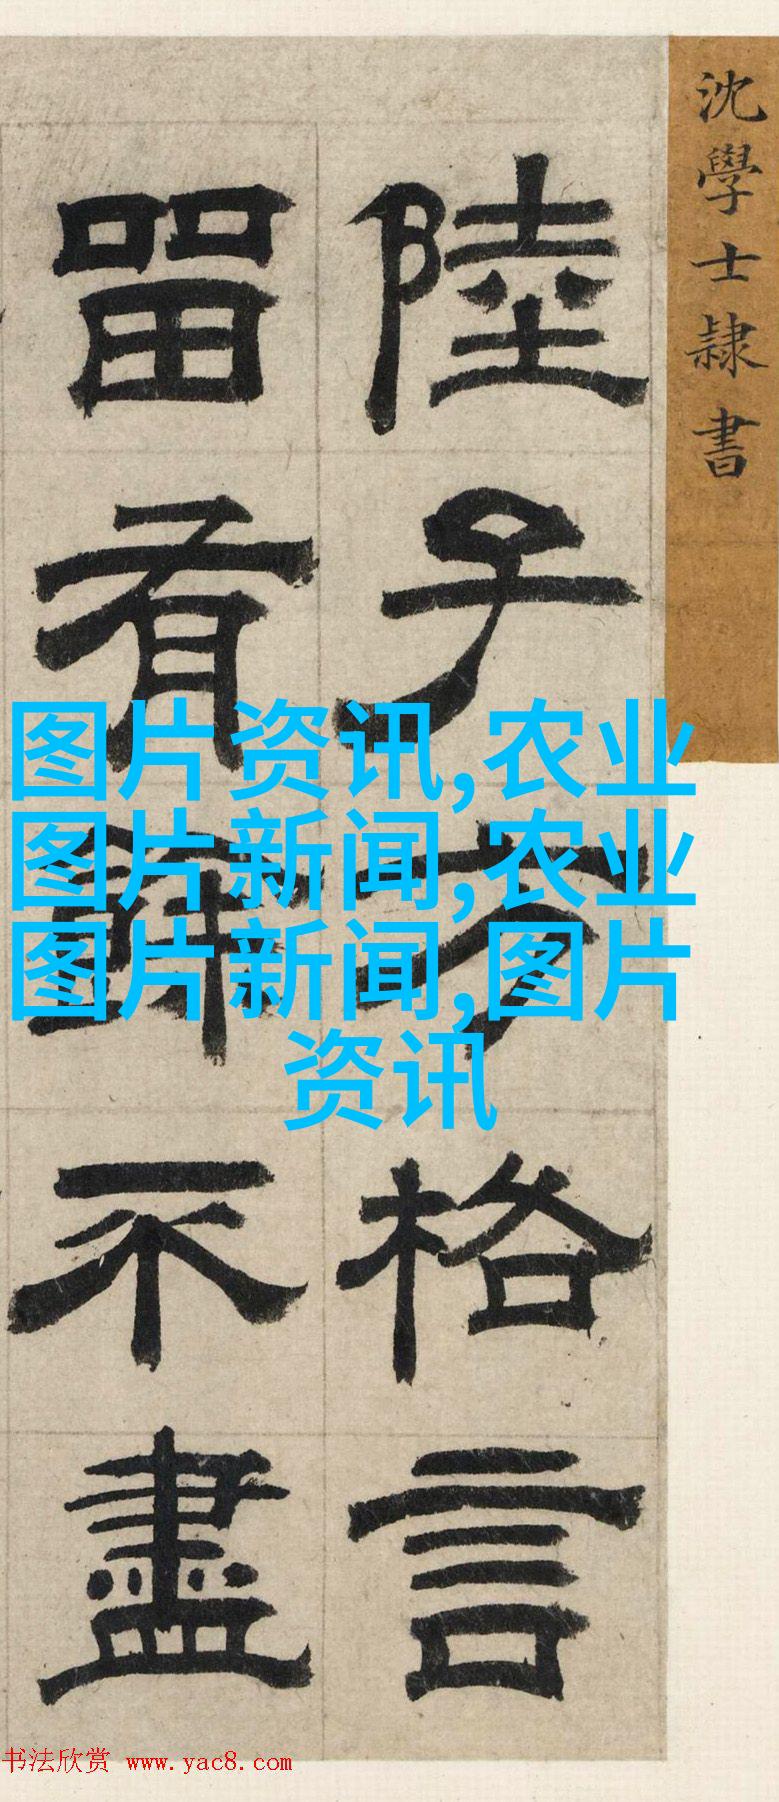 沈學士隸書
陸子方格言
畱有餘不盡
图片资讯,农业
图片新闻,农业
图片新闻,图片
资讯
书法欣赏 www.yac8.com